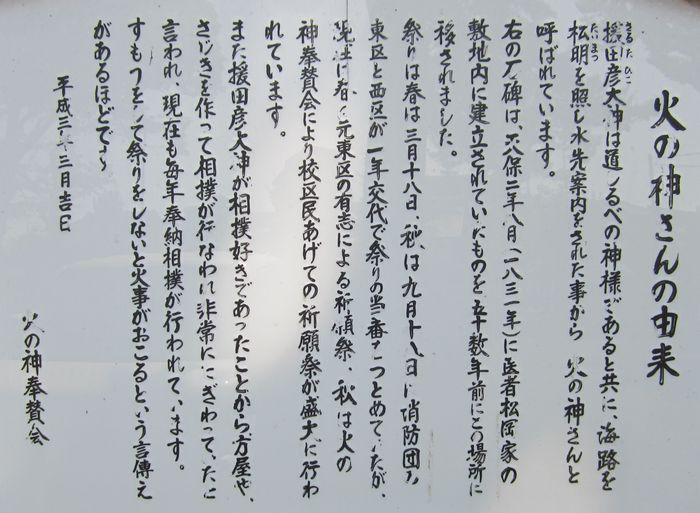 火の神さんの由来
さるたひこ
猨田彦大神は道しるべの神様であると共に、海路を
たいまつ
松明を照し水先案内をされた事から 火の神さんと
呼ばれています。
右の石碑は、天保二年八月(一八三一年)に医者松岡家の
敷地内に建立されていたものを五十数年前にこの場所に
移されました。
祭りは春は三月十八日、秋は九月十八日に消防団の
東区と西区が一年交代で祭りの当番をつとめていたが、
現在は春は元東区の有志による祈願祭、秋は火の
神奉賛会により校区民あげての祈願祭が盛大に行わ
れています。
また猨田彦大神が相撲好きであったことから方屋や、
さじきを作って相撲が行なわれ非常ににぎわって、たと
言われ、現在も毎年奉納相撲が行われています。
すもうをして祭りをしないと火事がおこるという言傳え
があるほどです
平成三年三月吉日
火の神奉賛会